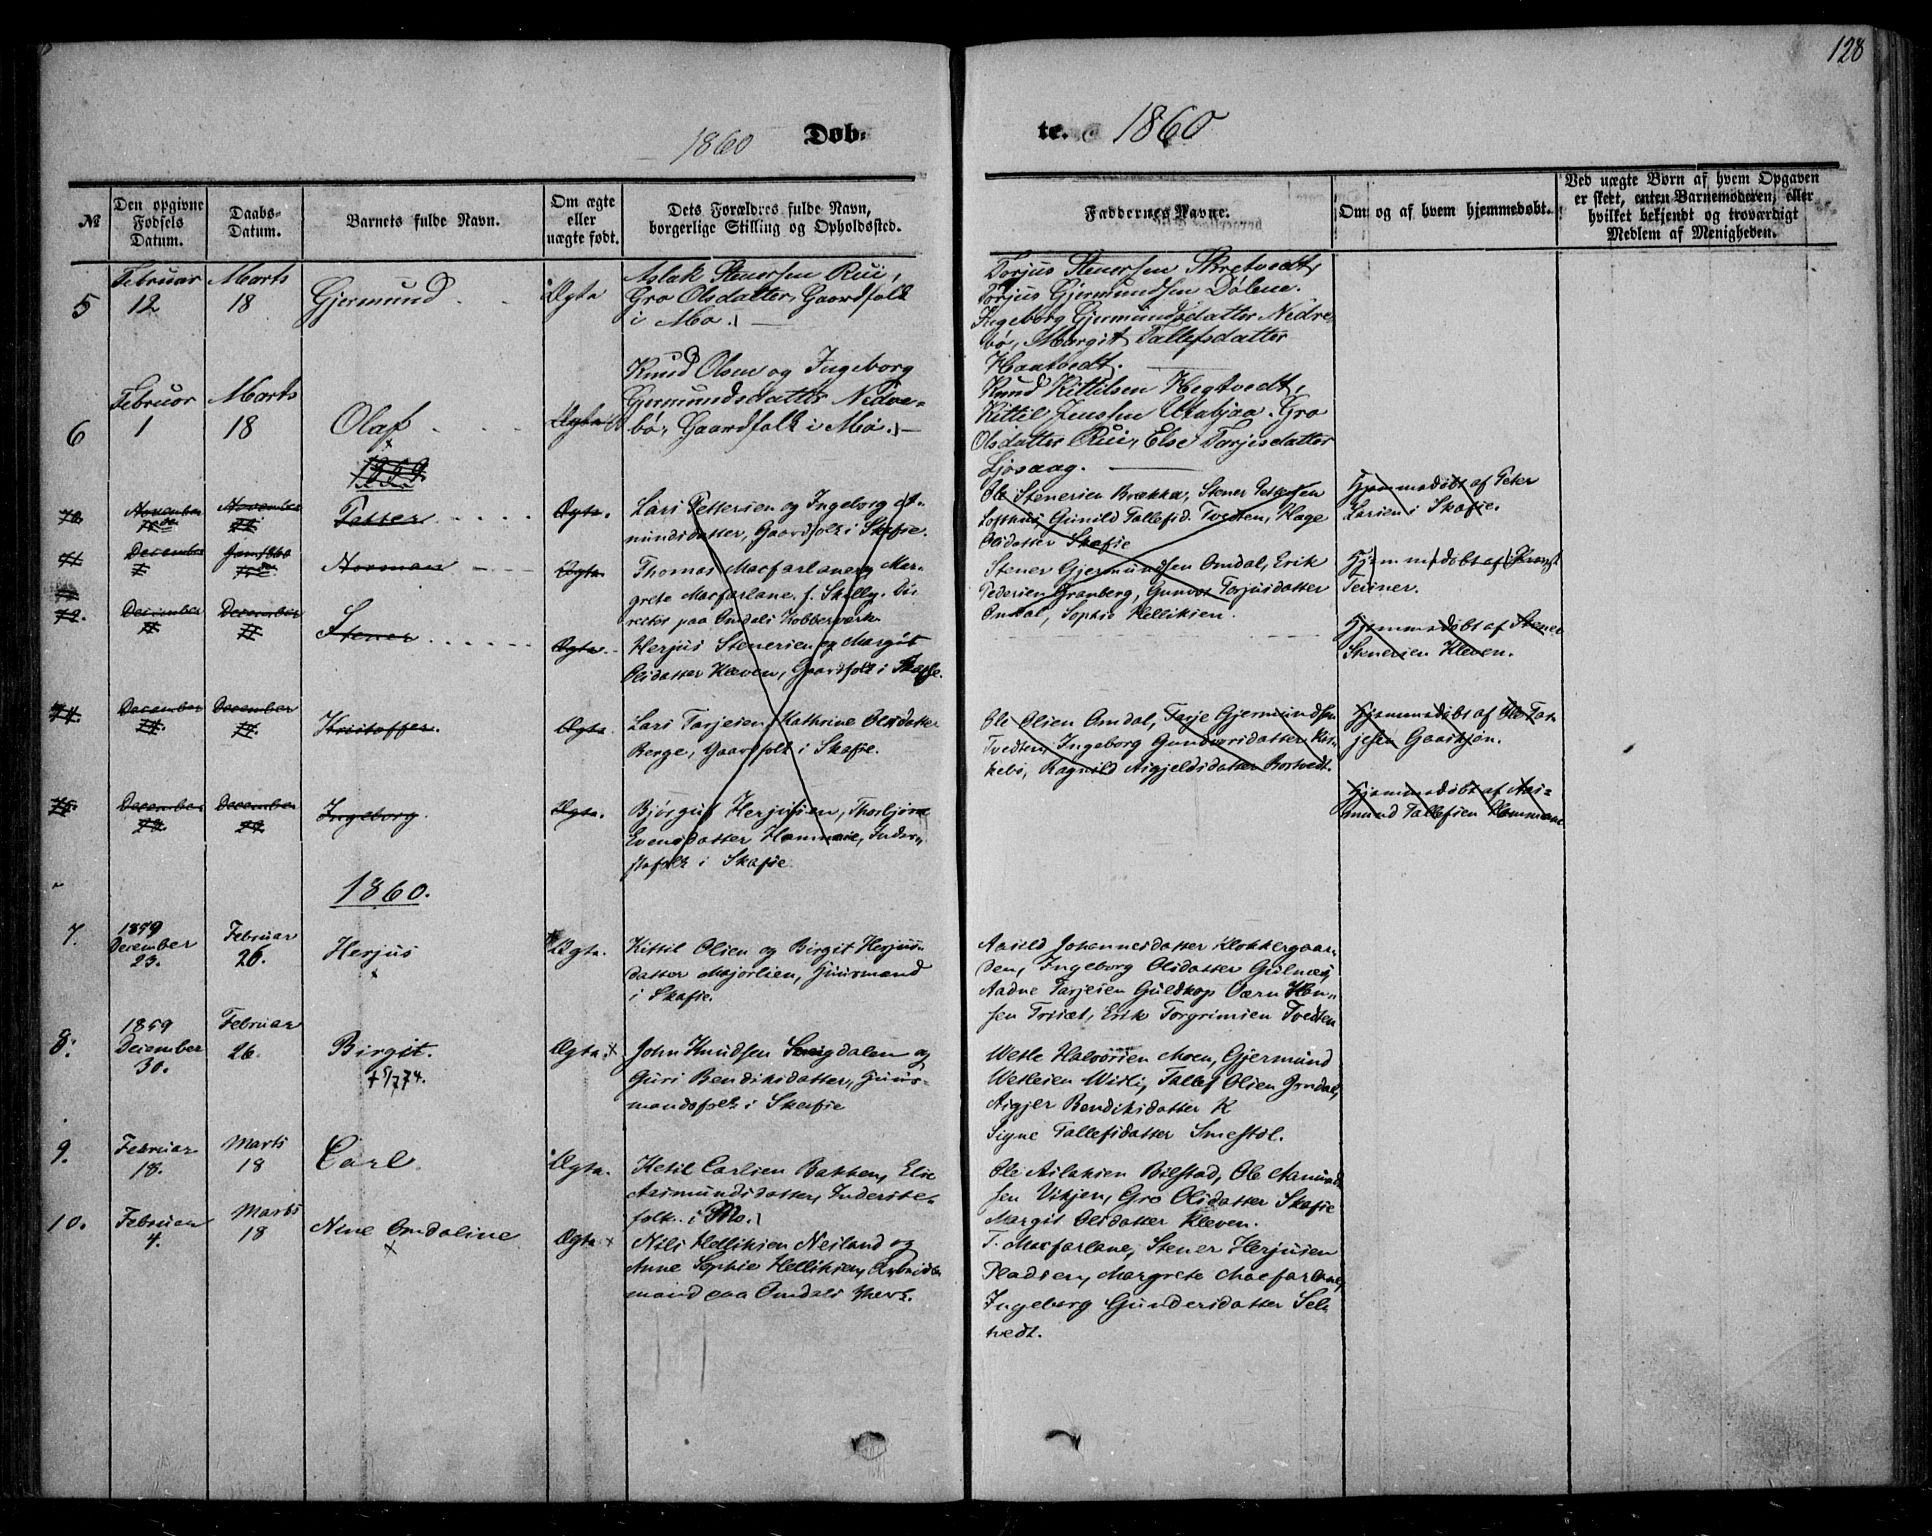 128
1860 Dob- te. 1860
№
Den opgivne Fødsels Datum.
Daabs-Datum.
Barnets fulde Navn.
Om ægte eller uægte født.
Dets Forældres fulde Navn, borgerlige Stilling og Opholdssted.
Faddernes Navne.
Om og af hvem hjemmedøbt.
Ved uægte Børn af hvem Opgaven er skeet, enten Barnemoderen, eller hvilket bekjendt og troværdigt Medlem af Menigheden.
5
Februar 12
Marts 18
Gjermund
Ægte
Aslak Stenersen Rui,
Gro Olsdatter, Gaardfolk
i Mo.
Torjus Stenersen Skretvedt,
Torjus Gjermundsen Dølene.
Ingeborg Gjermundsdatter Nedre-
bø, Margit Tallefsdatter
Hantvedt.
6
Februar 1
Marts 18
Olaf
Ægte
Knud Olsen og Ingeborg
Gjermundsdatter Nedre-
bø, Gaardfolk i Mo.
Knud Kittilsen Hegtvedt,
Kittil Jensen Utabjaa. Gro
Olsdatter Rui, Else Torjesdatter
Ljosaag.
1859
70.
November
November
Petter
Ægte.
Lars Pettersen og Ingeborg
mundsdatter, Gaardfolk i Skafse.
Ole Stenersen Brække, Stener Pettersen
Lofthus, Gunild Tallefsd. Tvedten, Hage
Olsdatter Skafse
Hjemmedøbt af Peter
Larsen i Skafse.
71.
December
Norman
Ægte.
Thomas Macfarlane og Mar-
grete Macfarlane, f. Skelly, Di
rektør paa Omdals Kobberværk.
Stener Gjermundsen Omdal, Erik
Pedersen Granberg, Gunvor Torjusdatter
Omdal, Sophie Helliksen.
Hjemmedøbt af
72.
December
December
Stener
Ægte.
Herjus Stenersen og Margit
Olsdatter Kleven, Gaardfolk i Skafse.
Hjemmedøbt af Stener
Stenersen Kleven.
74.
December
December
Kristoffer.
Ægte
Lars Tarjesen, Kathrine Olsdatter
Berge, Gaardfolk i Skafse.
Ole Olsen Omdal, Tarje Gjermundsen
Tvedten, Ingeborg Gundersdatter
Ragnild Aigjeldsdatter
Hjemmedøbt af Ole Tar-
jesen
75.
December
December
Ingeborg.
Ægte.
Bjørgulf Herjusen, Thorbjørn
Evensdatter Hommene, Inder-
stefolk i Skafse
Hjemmedøbt af Aas-
mund Tallefsen Hommene
1860.
7.
1859 December 23.
Februar 26.
Herjus
Ægte.
Kittil Olsen og Birgit Herjus-
datter Mjorlien, Huusmand
i Skafse.
Aasild Johannesdatter Klokkergaar-
den, Ingeborg Olsdatter Gulnæs,
Aadne Tarjesen Guldkop Værn Han-
sen Trisæt, Erik Torgrimsen Tvedten
8.
1859 December 30.
Februar 26.
Birgit.
Ægte.
John Knudsen Songdalen og
Guri Bendiksdatter, Huus-
mandsfolk i Skafse
Wetle Halvorsen Moen, Gjermund
Wetlesen Wisli, Tallef Olsen Omdal,
Aigjer Bendiksdatter K
Signe Tallefsdatter Smestøl.
9.
Februar 18.
Marts 18
Carl
Ægte.
Ketil Carlsen Bakken, Else
Aasmundsdatter, Inderste-
folk i Mo.
Ole Aslaksen Bilstad, Ole Aamund-
sen Vikjen, Gro Olsdatter Skafse
Margit Olsdatter Kleven.
10.
Februar 4.
Marts 18
Nine Omdaline
Ægte
Nils Helliksen Neiland og
Anne Sophie Helliksen, Arbeids-
mand paa Omdals Værk.
T. Macfarlane, Stener Herjusen
Pladsen, Margrete Macfarlane,
Ingeborg Gundersdatter Sel-
tvedt.